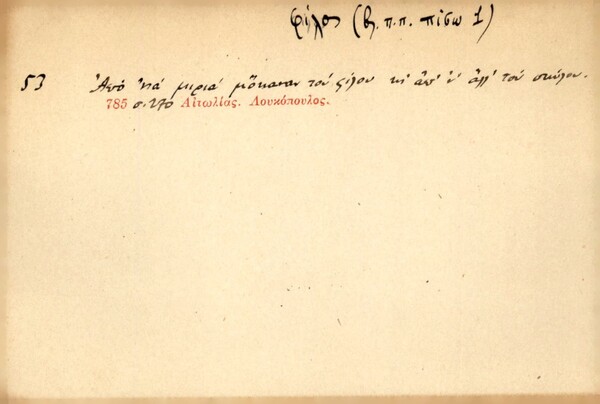 φίλος (β. π.π. πίσω 1)
53 Ἀπό 'νιά μιριά μὄκαναν τοὺν φίλου κι' ἀπ' ν' ἄλλ' τοὺν σκύλου.
785 σ. 270 Αἰτωλίας. Λουκόπουλος.